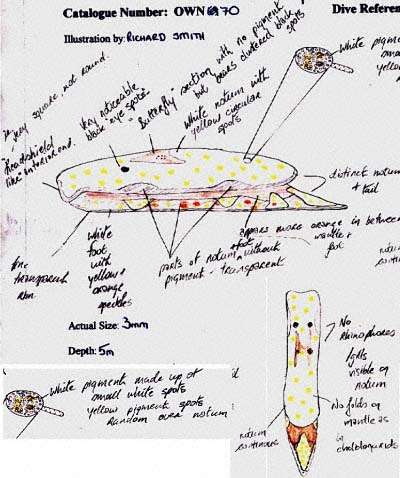 Catalogue Number: OWN 6970
Dive Referen
Illustration by: RICHARD SMITH
V. key square, not round.
"headshield
like" anterior end.
Very noticeable
black "eye spots"
"Butterfly" section with no pigment
but bears clustered black
spots
White notum with
yellow circular
spots
White pigme
small wh
yellow
Random
distinct notum
+ tail
transparent
rim.
white
foot
with
yellow +
orange
speckles
parts of notum + foot without
pigment - transparent
appears more orange in between
mantle +
foot
notum
continuous
Actual Size: 3mm
Depth: 5m
White pigment made up of
small white spots
yellow pigment spots
random over notum
No
Rhinophores
/gills
visible on
notum
No folds of
mantle as
in chelidonurids
notum
continuous